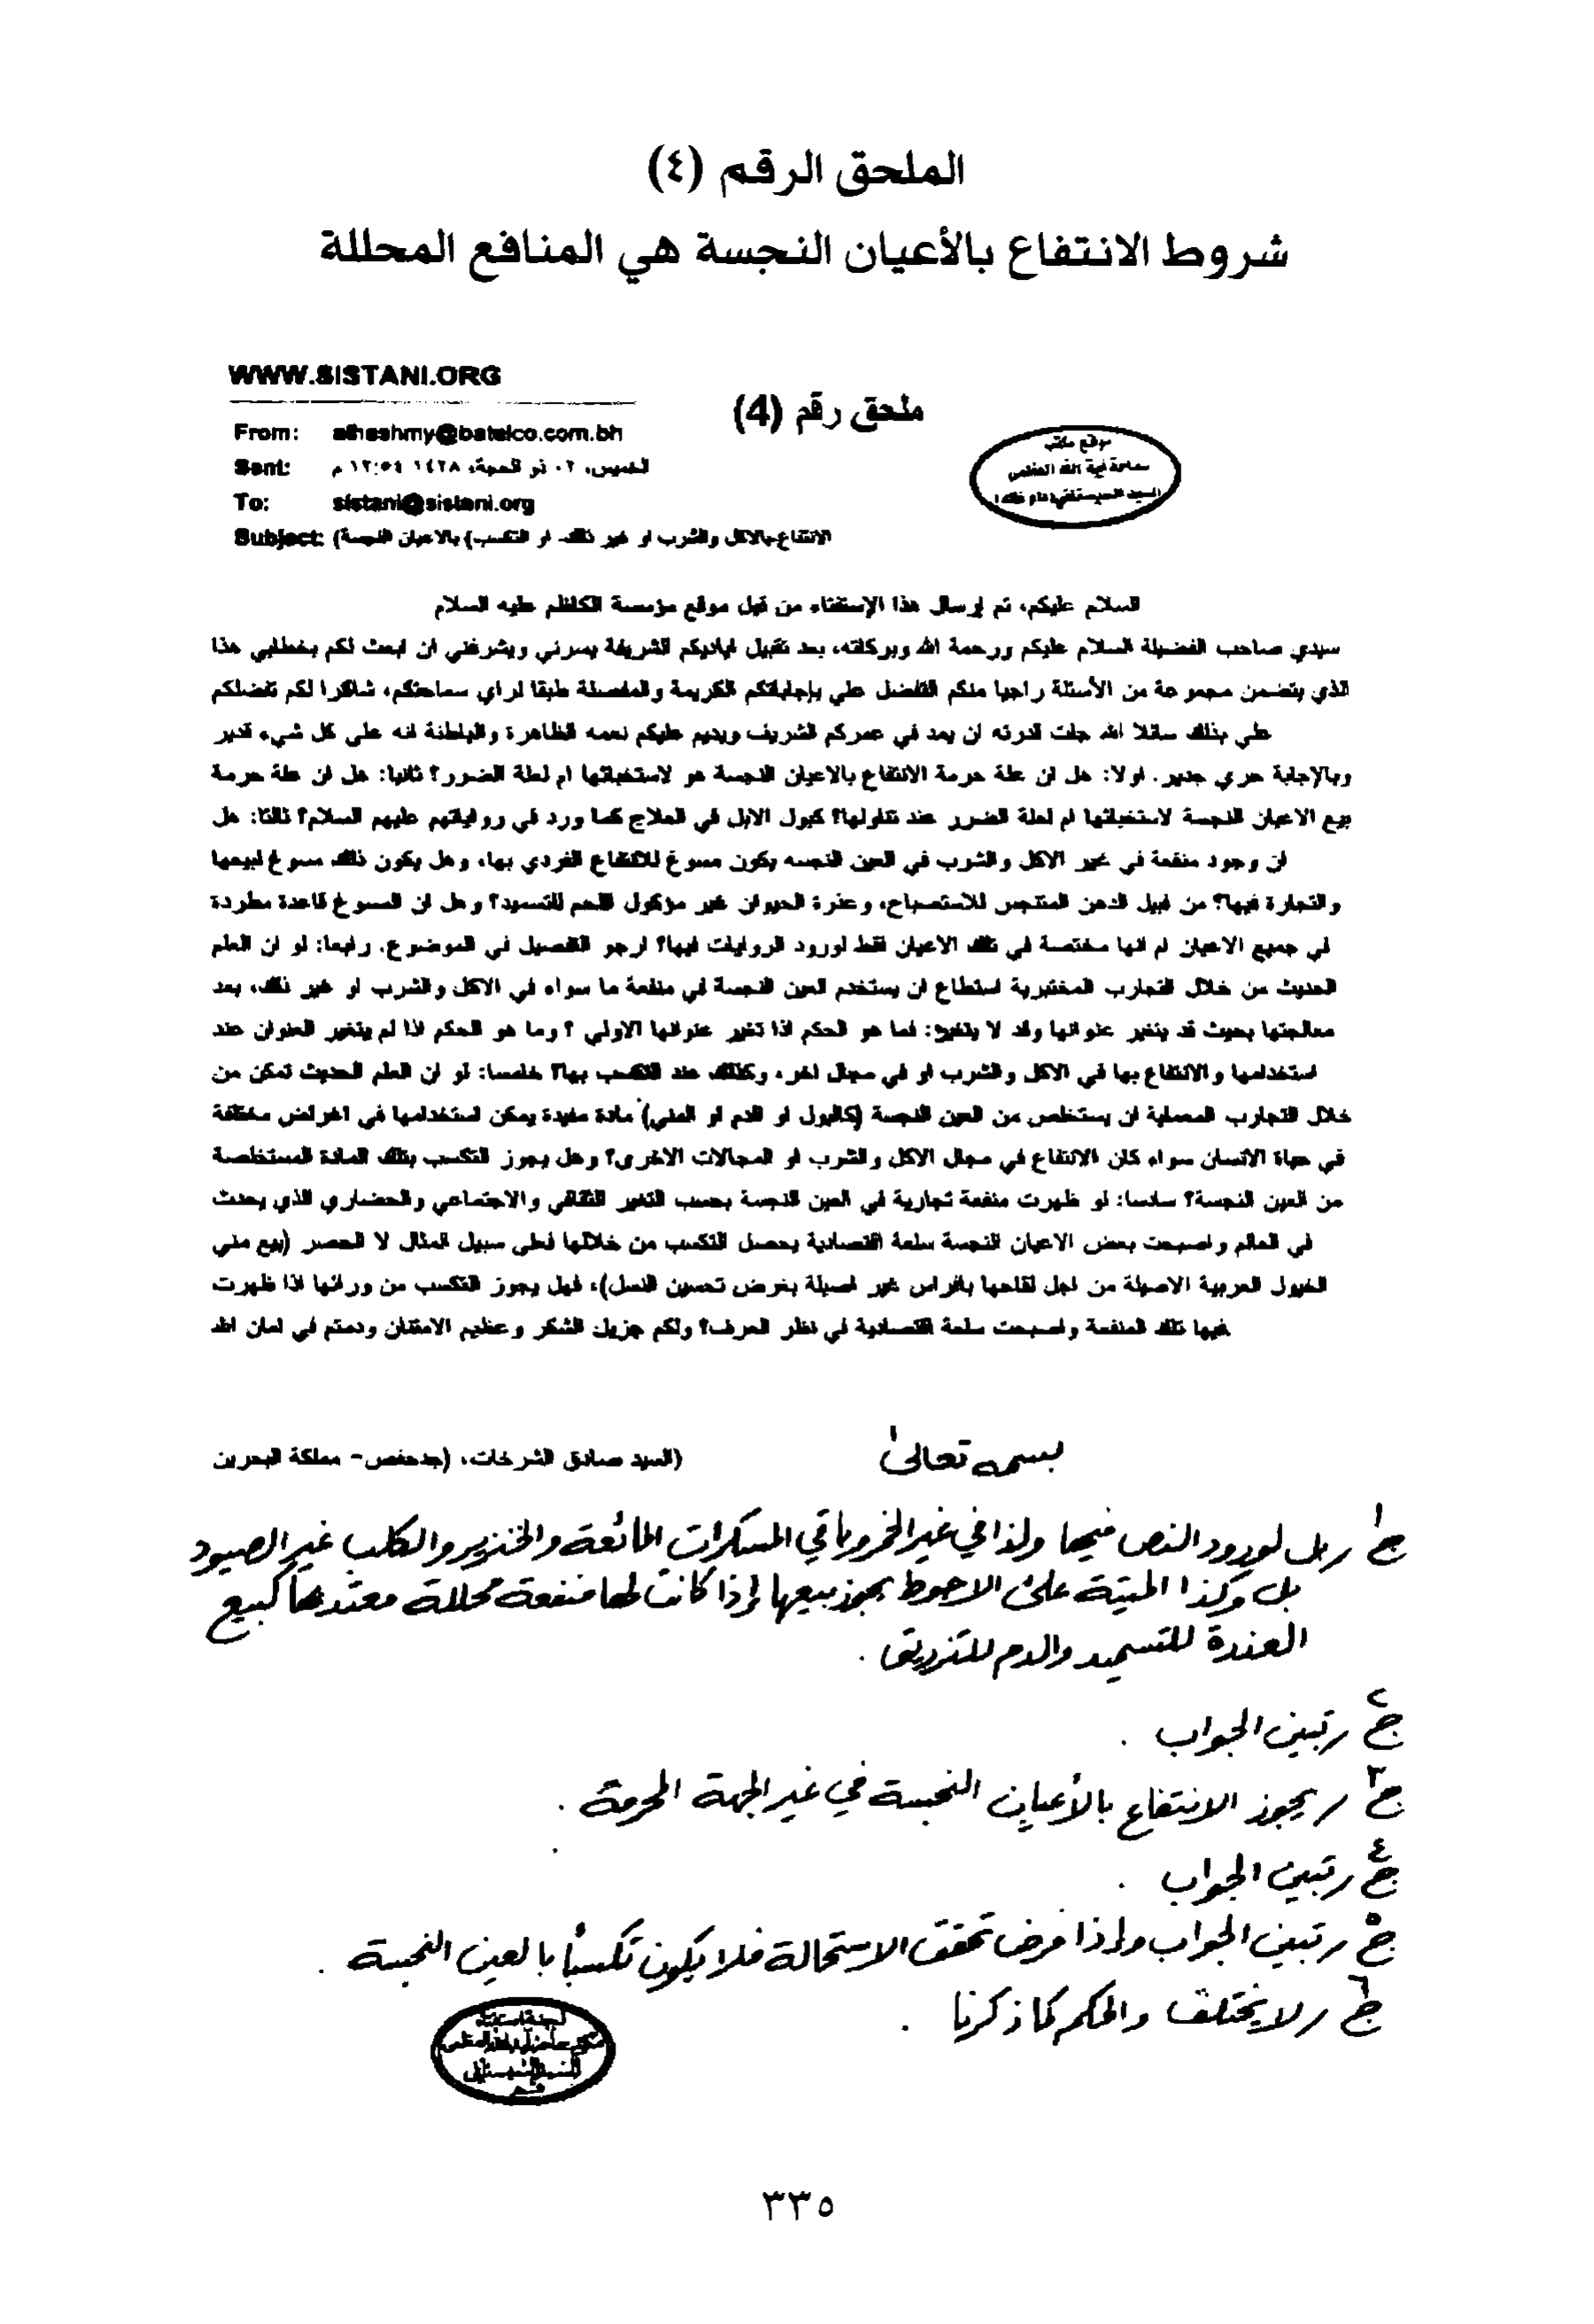 الملحق الرقم (٤)
شروط الانتفاع بالأعيان النجسة هي المنافع المحللة
WWW.SISTANI.ORG
ملحق رقم (4)
From: alhashmy@batelco.com.bh
موقع مكتب
سماحة آية الله العظمى
السيد السيستاني (دام ظله)
Sent: الخميس، ٠٢ ذو الحجة، ١٤٢٨ ١٢:٥٤ م
To: sistani@sistani.org
Subject: الانتفاع بالاكل والشرب او غير ذلك او التكسب) بالاعيان النجسة)
السلام عليكم، تم إرسال هذا الإستفتاء من قبل موقع مؤسسة الكاظم عليه السلام
سيدي صاحب الفضيلة السلام عليكم ورحمة الله وبركاته، بعد تقبيل اياديكم الشريفة يسرني ويشرفني ان ابعث لكم بخطابي هذا
الذي يتضمن مجموعة من الأسئلة راجيا منكم التفضل علي بإجاباتكم الكريمة والمفصلة طبقا لراي سماحتكم، شاكرا لكم تفضلكم
علي بذلك سائلا الله جلت قدرته ان يمد في عمركم الشريف ويديم عليكم نعمه الظاهرة والباطنة انه على كل شيء قدير
وبالإجابة حري جدير. اولا: هل ان علة حرمة الانتفاع بالاعيان النجسة هو لاستخباثها ام لعلة الضرر؟ ثانيا: هل ان علة حرمة
بيع الاعيان النجسة لاستخباثها ام لعلة الضرر عند تناولها؟ كبول الابل في العلاج كما ورد في رواياتهم عليهم السلام؟ ثالثا: هل
ان وجود منفعة في غير الاكل والشرب في العين النجسه يكون مسوغ للانتفاع الفردي بها، وهل يكون ذلك مسوغ لبيعها
والتجارة فيها؟ من قبيل الدهن المتنجس للاستصباح، وعذرة الحيوان غير مؤكول اللحم للتسميد؟ وهل ان المسوغ قاعدة مطردة
في جميع الاعيان ام انها مختصة في تلك الاعيان فقط لورود الروايات فيها؟ ارجو التفصيل في الموضوع. رابعا: لو ان العلم
الحديث من خلال التجارب المختبرية استطاع ان يستخدم العين النجسة في منفعة ما سواء في الاكل والشرب او غير ذلك، بعد
معالجتها بحيث قد يتغير عنوانها وقد لا يتغير: فما هو الحكم اذا تغير عنوانها الاولي ؟ وما هو الحكم اذا لم يتغير العنوان عند
استخدامها والانتفاع بها في الاكل والشرب او في مجال اخر، وكذلك عند التكسب بها؟ خامسا: لو ان العلم الحديث تمكن من
خلال التجارب المعملية ان يستخلص من العين النجسة (كالبول او الدم او المني) مادة مفيدة يمكن استخدامها في اغراض مختلفة
في حياة الانسان سواء كان الانتفاع في مجال الاكل والشرب او المجالات الاخرى؟ وهل يجوز التكسب بتلك المادة المستخلصة
من العين النجسة؟ سادسا: لو ظهرت منفعة تجارية في العين النجسة بحسب التغير الثقافي والاجتماعي والحضاري الذي يحدث
في العالم واصبحت بعض الاعيان النجسة سلعة اقتصادية يحصل التكسب من خلالها فعلى سبيل المثال لا الحصر (بيع مني
الخيول العربية الاصيلة من اجل لقاحها بافراس غير اصيلة بغرض تحسين النسل)، فهل يجوز التكسب من ورائها اذا ظهرت
فيها تلك المنفعة واصبحت سلعة اقتصادية في نظر العرف؟ ولكم جزيل الشكر وعظيم الامتنان ودمتم في امان الله
بسمه تعالى
(السيد صادق الشرخات، (جدحفص- مملكة البحرين
ج١/ بل لورود النص فيها ولذا في غير الخمر وباقي المسكرات المائعة والخنزير والكلب غير الصيود
بل وكذا الميتة على الاحوط يجوز بيعها إذا كانت لها منفعة محللة معتد بها كبيع
العذرة للتسميد والدم للتزريق.
ج٢/ تبين الجواب.
ج٣/ يجوز الانتفاع بالأعيان النجسة في غير الجهة المحرمة.
ج٤/ تبين الجواب.
ج٥/ تبين الجواب وإذا فرض تحقق الاستحالة فلا يكون تكسباً بالعين النجسة.
ج٦/ لا يختلف والحكم كما ذكرنا.
٣٣٥